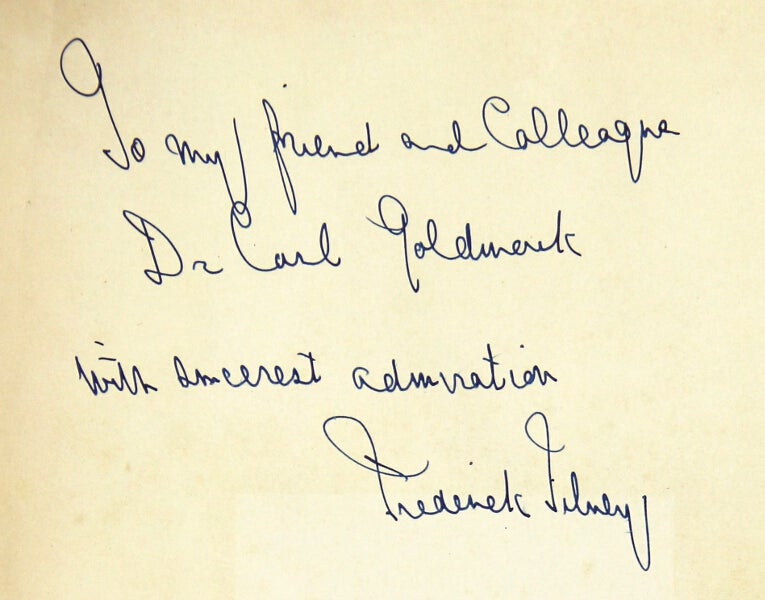 To my friend and Colleague
Dr Carl Goldmark
with sincerest admiration
Frederick Tilney